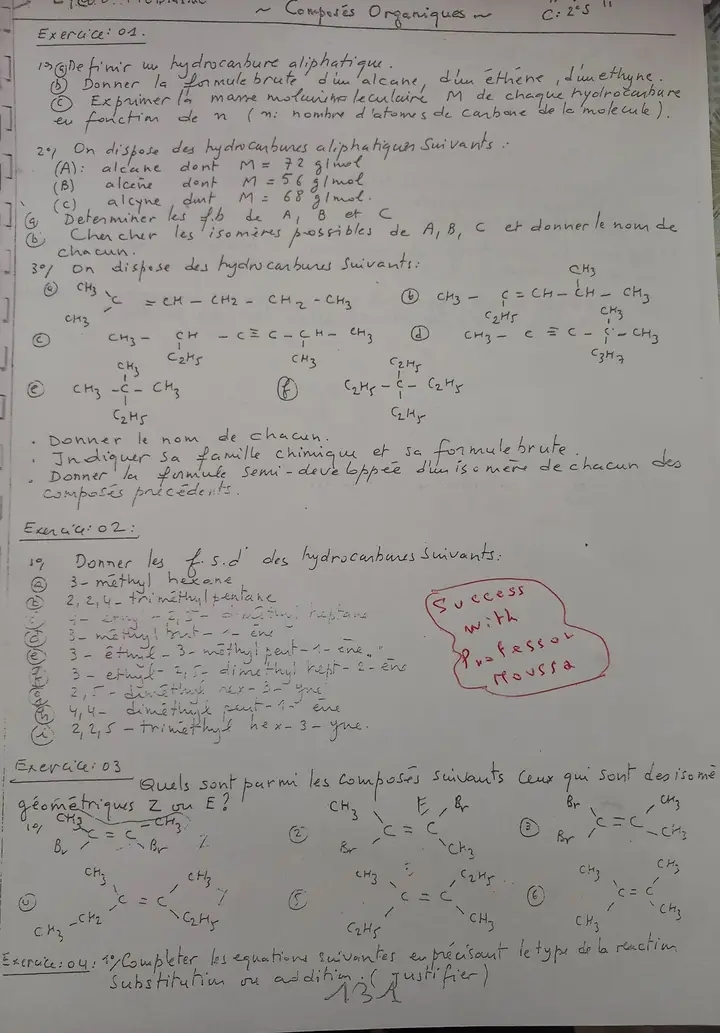 ~ Composés Organiques ~
C: 2eS
Exercice: 01.
1°) a) Definir un hydrocarbure aliphatique.
b) Donner la formule brute d'un alcane, d'un éthène, d'un ethyne.
c) Exprimer la masse moléculaire M de chaque hydrocarbure
en fonction de n (n: nombre d'atomes de carbone de la molecule).
2°/ On dispose des hydrocarbures aliphatiques suivants:
(A): alcane dont M = 72 g/mol
(B) alcène dont M = 56 g/mol
(C) alcyne dont M = 68 g/mol.
a) Determiner les f.b de A, B et C
b) Chercher les isomères possibles de A, B, C et donner le nom de
chacun.
3°/ On dispose des hydrocarbures suivants:
CH3 CH3
a) C = CH - CH2 - CH2 - CH3 b) CH3 - C = CH - CH - CH3
CH3 C2H5 CH3
c) CH3 - CH - C ≡ C - CH - CH3 d) CH3 - C ≡ C - C - CH3
C2H5 CH3 C3H7
CH3 C2H5
e) CH3 - C - CH3 f) C2H5 - C - C2H5
C2H5 C2H5
. Donner le nom de chacun.
. Indiquer sa famille chimique et sa formule brute.
. Donner la formule semi-developpée d'un isomère de chacun des
composés précédents.
Exercice: 02:
1°) Donner les f.s.d des hydrocarbures suivants:
a) 3-méthyl hexane
b) 2,2,4-triméthyl pentane
2,5-diméthyl heptane
3-méthyl but-1-ène
3-éthyl-3-méthyl pent-1-ène.
3-ethyl-2,5-dimethyl hept-2-ène
2,5-diméthyl hex-3-yne
4,4-diméthyl pent-1-ène
i) 2,2,5-triméthyl hex-3-yne.
Success
with
Professor
Moussa
Exercice: 03
Quels sont parmi les composés suivants ceux qui sont des isomè
géométriques Z ou E?
CH3 CH3 CH3 E Br Br CH3
1°) C = C 2) C = C 3) C = C
Br Br Br CH3 Br CH3
CH3 CH3 CH3 C2H5 CH3 CH3
C = C 5) C = C 6) C = C
CH3 - CH2 C2H5 C2H5 CH3 CH3 CH3
Exercice: 04: 1°/ Completer les equations suivantes en précisant le type de la reaction
Substitution ou addition. (Justifier)